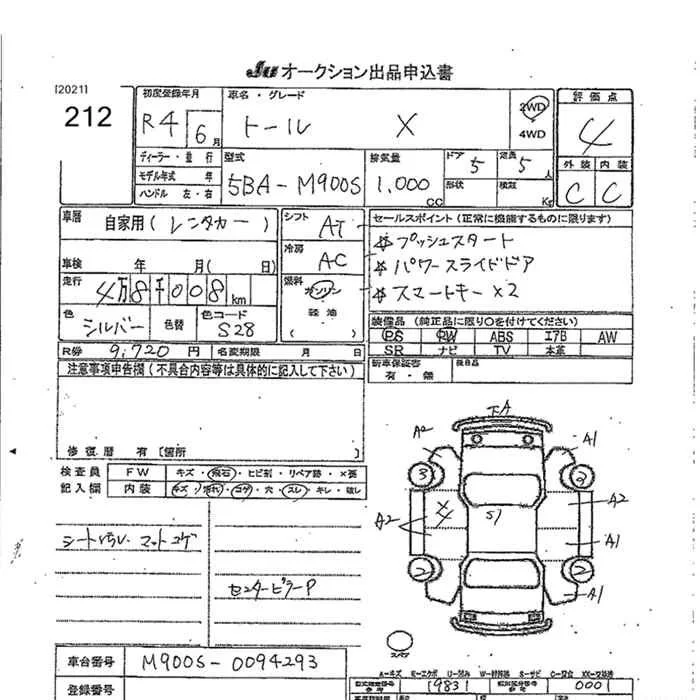 Ju オークション出品申込書
[2021]
212
初度登録年月
R4 6月
車名・グレード
トール X
2WD
4WD
評価点
4
ディーラー・並行
モデル年式 年
ハンドル 左・右
型式
5BA-M900S
排気量
1,000 CC
ドア 5
定員 5 人
形状
積載 Kg
外装 内装
C C
車歴 自家用(レンタカー)
シフト AT
セールスポイント (正常に機能するものに限ります)
☆プッシュスタート
☆パワースライドドア
☆スマートキー×2
冷房 AC
車検 年 月( 日)
走行 4万8千008 km
燃料 ガソリン
軽油
( )
色 シルバー 色替
色コード S28
装備品 (純正品に限り○を付けてください)
PS PW ABS エアB AW
SR ナビ TV 本革
R券 9,720 円 名変期限 月 日
新車保証書
有・無
後日品
注意事項申告欄 (不具合内容等は具体的に記入して下さい)
修復歴 有 [箇所 ]
検査員 FW キズ・飛石・ヒビ割・リペア跡・×要
記入欄 内装 キズ・汚れ・コゲ・穴・スレ・キレ・破レ
マットコゲ
センターピラーP
下A
A2 A1
3 2
A2 A2
S1
A1
2 2
A1
スペア
車台番号 M900S-0094293
登録番号
A-キズ E-エクボ U-凹み W-補修跡 S-サビ C-腐食 XX-交換済
型式指定番号 19831 類別区分番号 0001